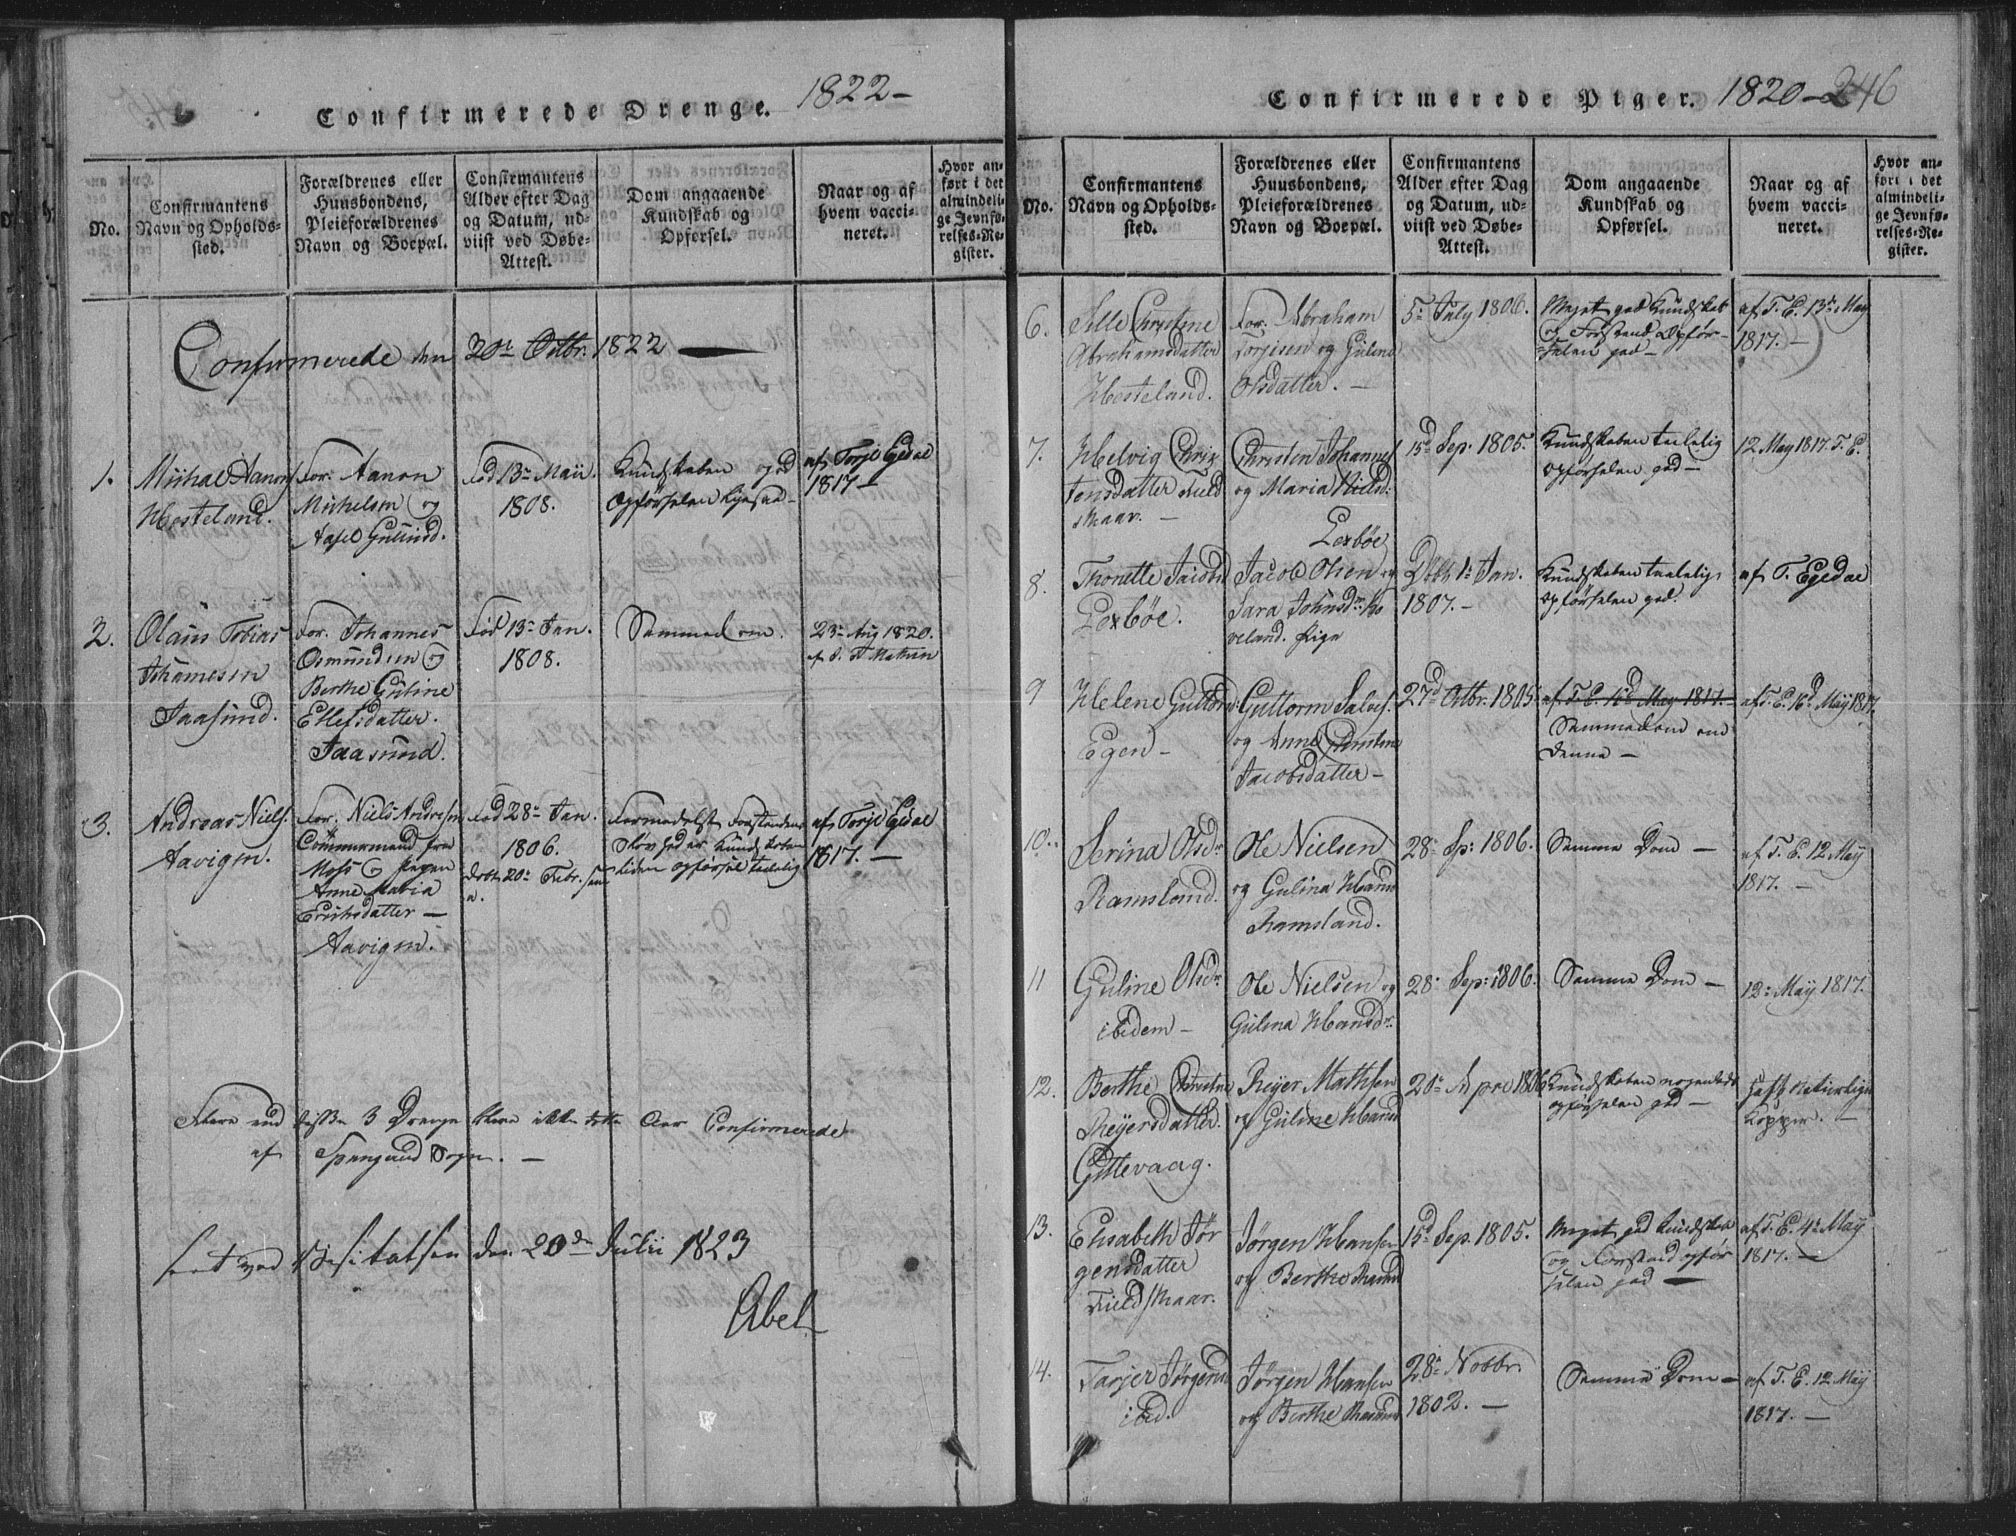 Confirmerede Drenge. 1822-
No.
Confirmantens Navn og Opholds-sted.
Forældrenes eller Huusbondens, Pleieforældrenes Navn og Boepæl.
Confirmantens Alder efter Dag og Datum, ud-viist ved Døbe-Attest.
Dom angaaende Kundskab og Opførsel.
Naar og af hvem vacci-neret.
Hvor an-ført i det almindeli-ge Jevnfø-relses-Re-gister.
Confirmerede den 20de Octbr. 1822 —
1.
Michal Aanons
Hosteland.
For. Aanon
Michelsen og
Aasel Gulimd.
Fød 13de Maii
1808.
Kundskaben god
Opførselen ligesaa-
af Torje Egdal
1817-
2.
Olaus Tobias
Johannesen
Jaasund.
For. Johannes
Osmundsen og
Berthe Guline
Ellefsdatter.
Jaasund.
Fød 13de Jan.
1808.
Samme Dom.
23de Aug 1820.
3.
Andreas Niels.
Aavigen.
For. Niels Andresen
fra
Moss og Pigen
Anne Maria
Erichsdatter —
Aavigen.
Fød 28de Jan.
1806.
Døbt 20de Febr.
Formedelst Forstandens
Sløvhed er Kundskaben
liden opførsel taalelig
af Torje Egdal
1817. —
Flere end disse 3 Drenge bleve ikke dette Aar Confirmerede
af Spangereid Sogn. —
Seet ved Visitatsen den 20de Julii 1823
Abel
Confirmerede Piger. 1820- 246
No.
Confirmantens Navn og Opholds-sted.
Forældrenes eller Huusbondens, Pleieforældrenes Navn og Boepæl.
Confirmantens Alder efter Dag og Datum, ud-viist ved Døbe-Attest.
Dom angaaende Kundskab og Opførsel.
Naar og af hvem vacci-neret.
Hvor an-ført i det almindeli-ge Jevnfø-relses-Re-gister.
6.
Sille Christine
Abrahamsdatter
Hosteland.
For. Abraham
Torjisen og Guline
Olsdatter. —
5te July 1806.
Meget god Kundskab
og Forstand Opfør-
selen god-
af T. E. 13de May
1817. —
7.
Helvig Chris
tensdatter Field
skaar. —
Christen Johannes
og Maria Nielsd:
15d Sep. 1805.
Kundskaben taalelig
opførselen god-
12 May 1817 T. E.
8.
Thonette Jacobsd
Lexbøe.
Lexbøe
Jacob Olsen og
Sara Johnsdr. Ho
veland. Pige
Døbt 1te Jan.
1807.-
Kundskaben taalelig,
opførselen god.
af T. Egedal
9
Helene Guttorms
Egen-
Guttorm Salves.
og Anne Christine
Jacobsdatter-
27d Octbr. 1805.
af T. E. 16d May 1817.
Samme Dom om
denne-
af T. E. 16d May 1817.
10.
Serina Olsdr
Ramsland.
Ole Nielsen
og Gulina Hans
Ramsland.
28de Sp: 1806.
Samme Dom —
af T. E. 12 May
1817. —
11
Guline Olsdr.
ibidem-
Ole Nielsen og
Gulina Hansdr.
28de Sep: 1806.
Samme Dom —
12te May 1817.
12.
Berthe Christine
Reyersdatter.
Gittevaag.
Reyer Mathsen
og Guline Hansd
20de Apr. 1806
Kundskaben nogenledes
opførselen god-
haft naturlige
Kopper. —
13.
Elisabeth Jør
gensdatter
Fieldskaar.
Jørgen Hansen
og Berthe Rasmd
15d Sep. 1805.
Meget god Kundskab
og Forstand opfør
selen god —
af T. E. 4de May
1817. —
14.
Tarjer Jørgensd
ibid.
Jørgen Hansen
og Berthe Rasmd
28de Novbr.
1802. —
Samme Dom —
af T. E. 12 May
1817. —